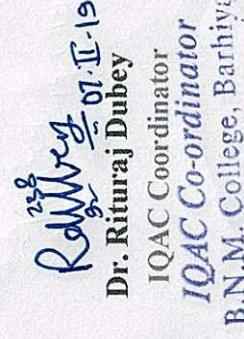 07-II-19
Dr. Rituraj Dubey
IQAC Coordinator
IQAC Co-ordinator
B.N.M. College, Barhiya